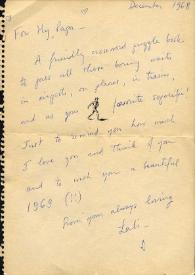 December 1968
For My Papa –
A friendly crossword puzzle book
to pass all those boring waits
in airports, on planes, in trains,
and as your favorite soporific!
Just to remind you how much
I love you and think of you
and to wish you a beautiful
1969 (!!)
From your always loving